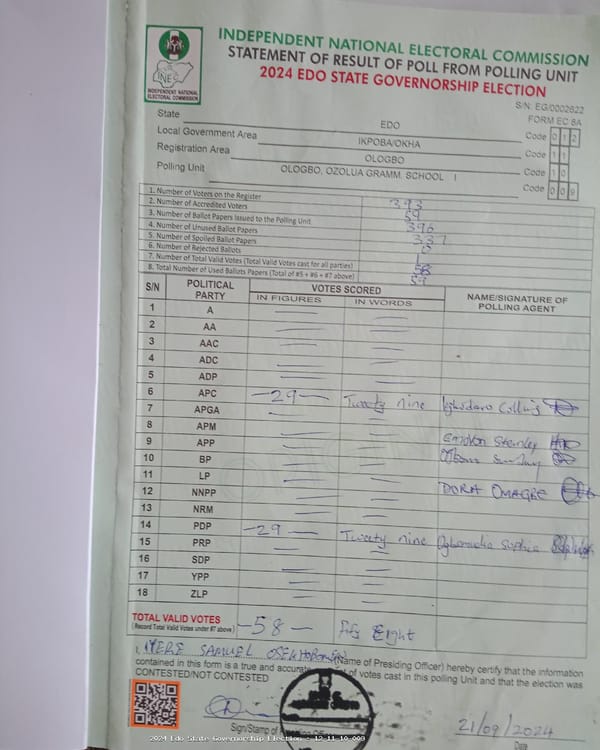 INDEPENDENT NATIONAL ELECTORAL COMMISSION
STATEMENT OF RESULT OF POLL FROM POLLING UNIT
2024 EDO STATE GOVERNORSHIP ELECTION
INEC
INDEPENDENT NATIONAL ELECTORAL COMMISSION
S/N: EG/0002622
FORM EC 8A
State EDO Code 0 1 2
Local Government Area IKPOBA/OKHA Code 1 1
Registration Area OLOGBO Code 1 0
Polling Unit OLOGBO, OZOLUA GRAMM. SCHOOL I Code 0 0 9
1. Number of Voters on the Register 393
2. Number of Accredited Voters 59
3. Number of Ballot Papers Issued to the Polling Unit 396
4. Number of Unused Ballot Papers 337
5. Number of Spoiled Ballot Papers 0
6. Number of Rejected Ballots 1
7. Number of Total Valid Votes (Total Valid Votes cast for all parties) 58
8. Total Number of Used Ballots Papers (Total of #5 + #6 + #7 above) 59
S/N POLITICAL PARTY VOTES SCORED NAME/SIGNATURE OF POLLING AGENT
IN FIGURES IN WORDS
1 A
2 AA
3 AAC
4 ADC
5 ADP
6 APC -29- Twenty nine Collins
7 APGA
8 APM
9 APP Stanley
10 BP Sunday
11 LP
12 NNPP DORA OMAGBE
13 NRM
14 PDP -29- Twenty nine Sophia
15 PRP
16 SDP
17 YPP
18 ZLP
TOTAL VALID VOTES -58- Fifty Eight
(Record Total Valid Votes under #7 above)
I, SAMUEL (Name of Presiding Officer) hereby certify that the information
contained in this form is a true and accurate of votes cast in this polling Unit and that the election was
CONTESTED/NOT CONTESTED
21/09/2024
Sign/Stamp of Date
2024 Edo State Governorship Election - 12-11-10-009